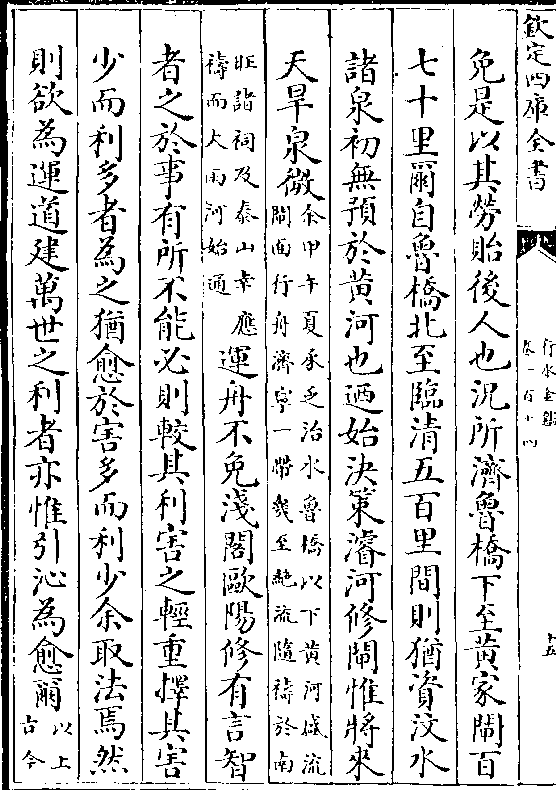 欽定四庫全書
行水金鑑
卷一百十四
十五
免是以其勞貽後人也況所濟魯橋下至黃家閘百
七十里爾自魯橋北至臨清五百里間則猶資汶水
諸泉初無預於黃河也迺始決策濬河修閘惟將來
天旱泉微余甲午夏承乏治水魯橋以下黃河盛流閘面行舟濟寜一帶幾至絶流隨禱於南
旺諸祠及泰山幸應禱而大雨河始通運舟不免淺閣歐陽修有言智
者之於事有所不能必則較其利害之輕重擇其害
少而利多者為之猶愈於害多而利少余取法焉然
則欲為運道建萬世之利者亦惟引沁為愈爾以上古今